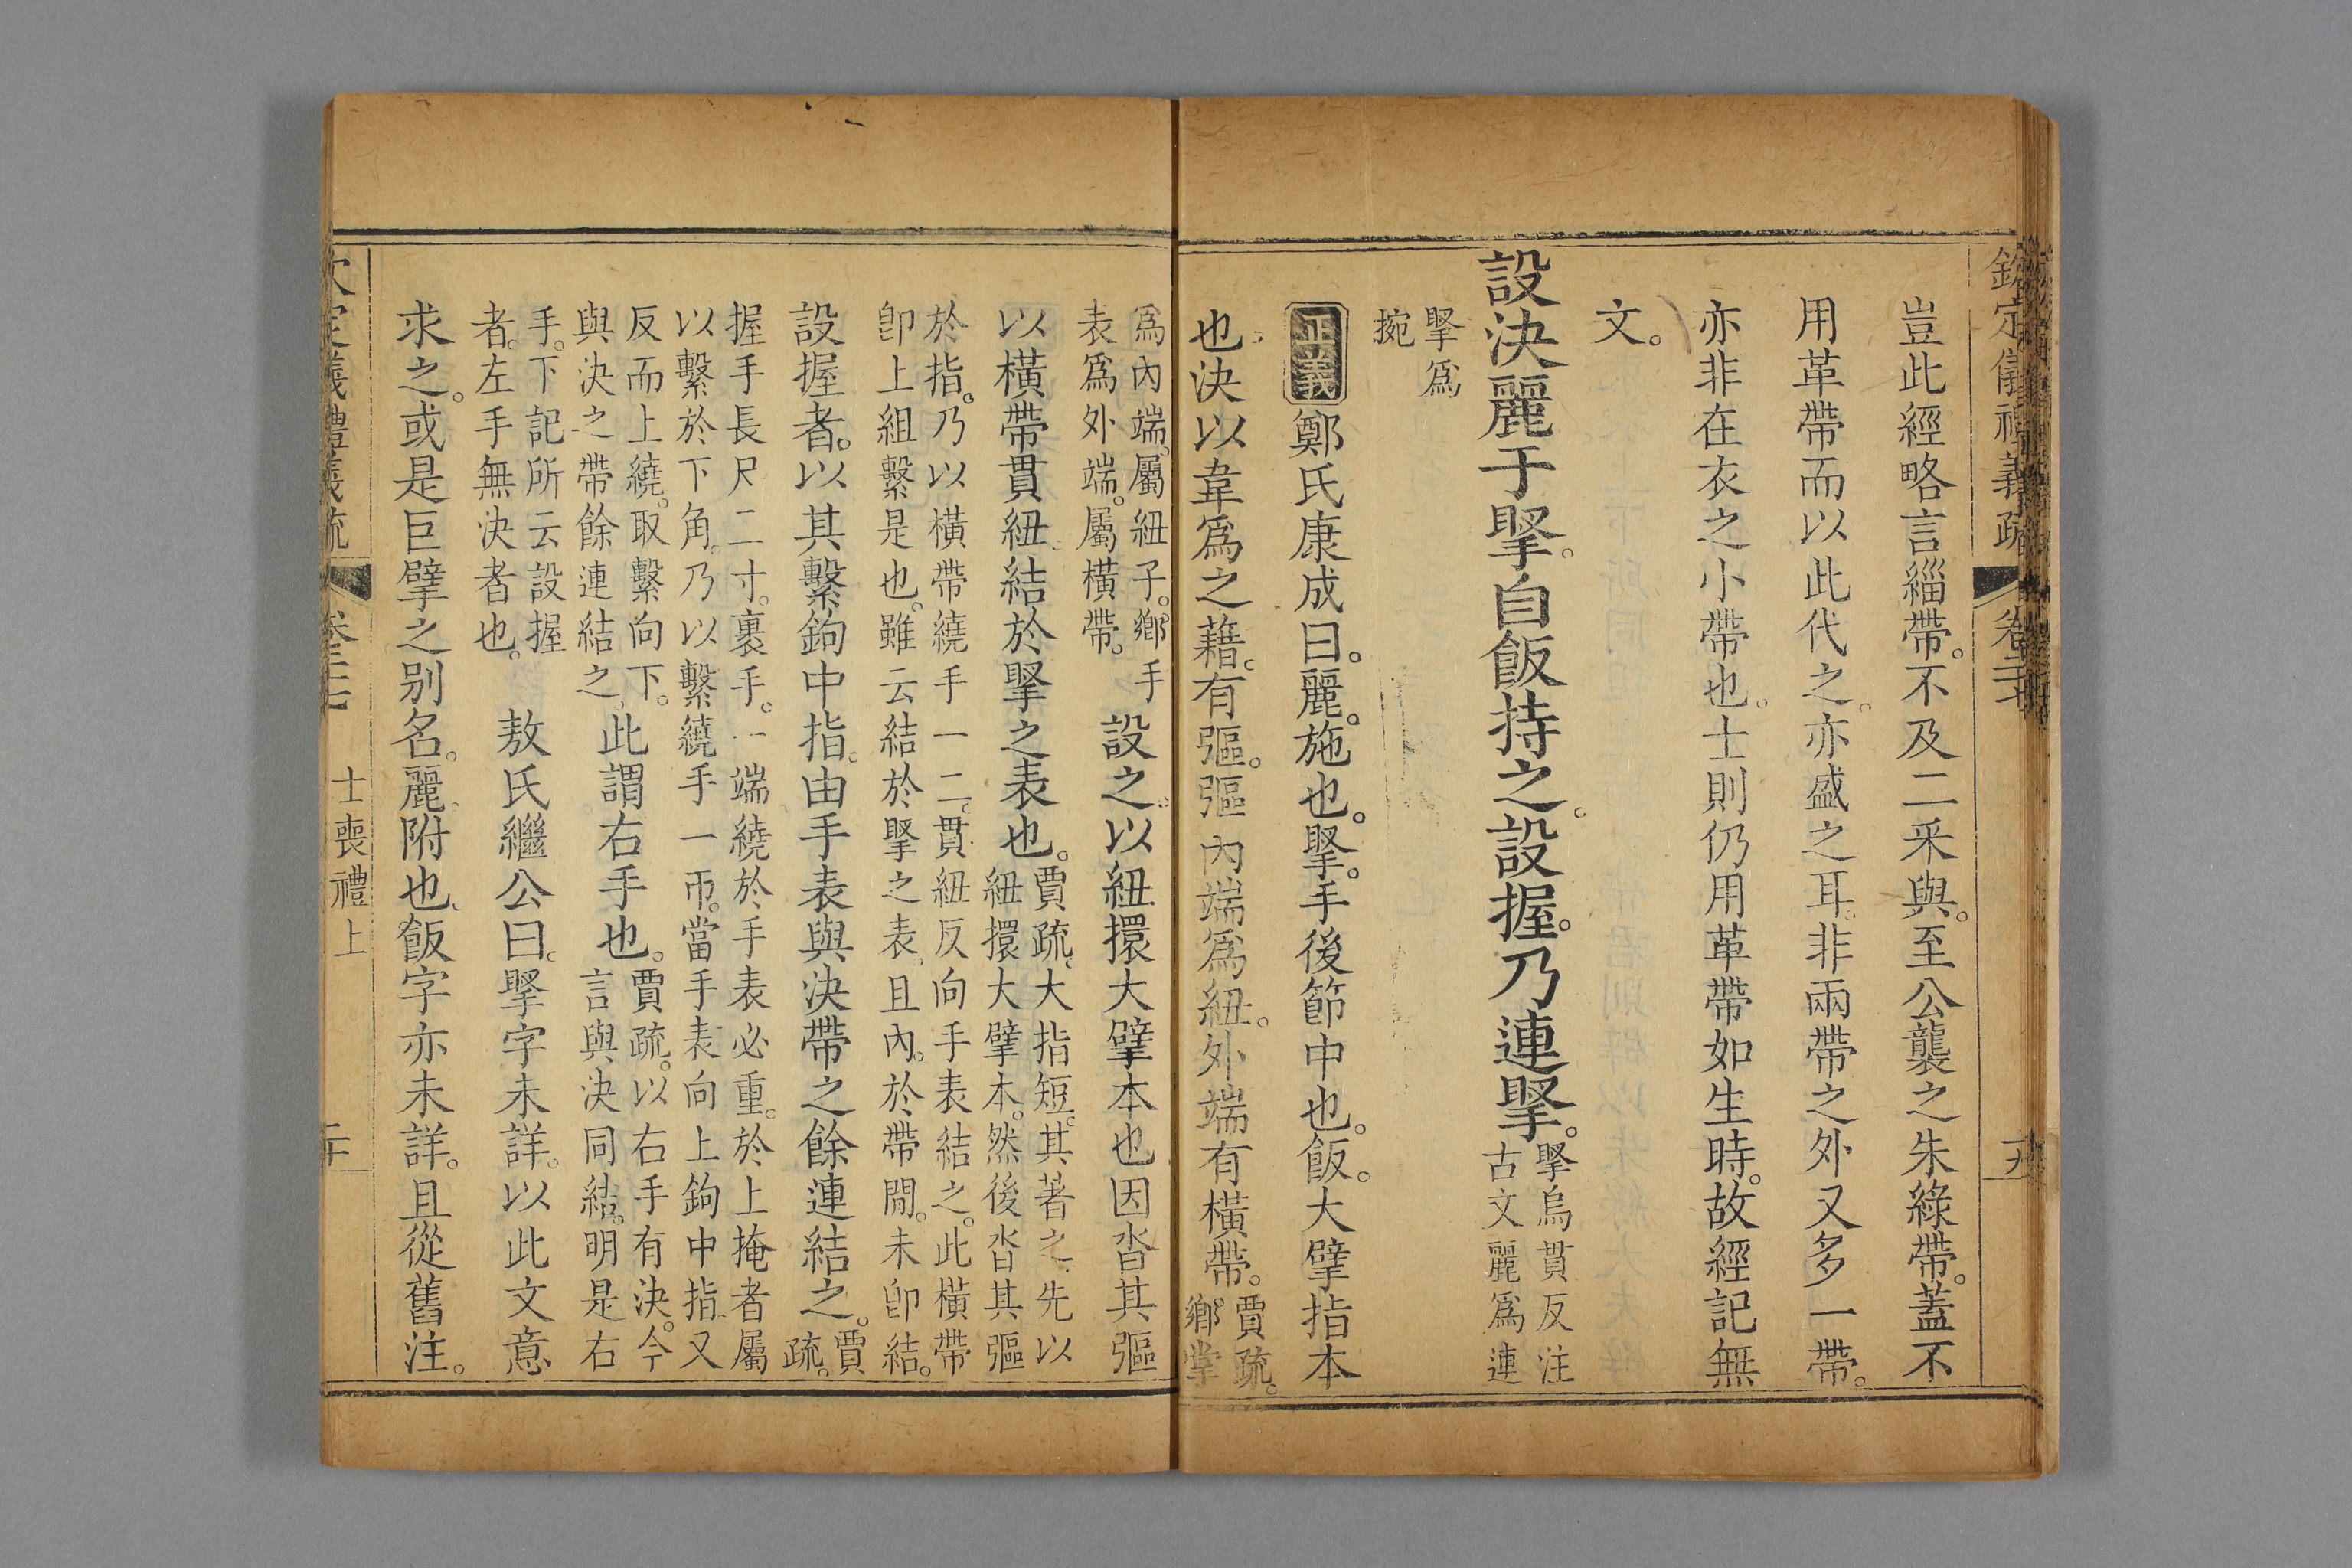 欽定儀禮義疏 卷二十七 十九
豈此經略言緇帶。不及二采與。至公襲之朱綠帶。蓋不
用革帶而以此代之。亦盛之耳。非兩帶之外又多一帶。
亦非在衣之小帶也。士則仍用革帶如生時。故經記無
文。
設決麗于掔。自飯持之。設握。乃連掔。
掔烏貫反注
古文麗爲連
掔爲
捥
正義鄭氏康成曰。麗。施也。掔。手後節中也。飯。大擘指本
也。決以韋爲之藉。有彄。彄內端爲紐。外端有橫帶。
賈疏。
鄉掌
爲內端。屬紐子。鄉手
表爲外端。屬橫帶。
設之。以紐擐大擘本也因沓其彄
以橫帶貫紐。結於掔之表也。
賈疏。大指短。其著之。先以
紐擐大擘本。然後沓其彄
於指。乃以橫帶繞手一二。貫紐反向手表結之。此橫帶
卽上組繫是也。雖云結於掔之表。且內。於帶閒。未卽結。
設握者。以其繫鉤中指。由手表與決帶之餘連結之。
賈
疏。
握手長尺二寸。裹手。一端繞於手表必重。於上掩者屬
以繫於下角。乃以繫繞手一帀。當手表向上鉤中指。又
反而上繞。取繫向下。
與決之帶餘連結之。
此謂右手也。
賈疏。以右手有決。今
言與決同結。明是右
手。下記所云設握
者。左手無決者也。
敖氏繼公曰。掔字未詳。以此文意
求之。或是巨擘之別名。麗。附也。飯字亦未詳。且從舊注。
欽定儀禮義疏 卷二十七 士喪禮上 二十